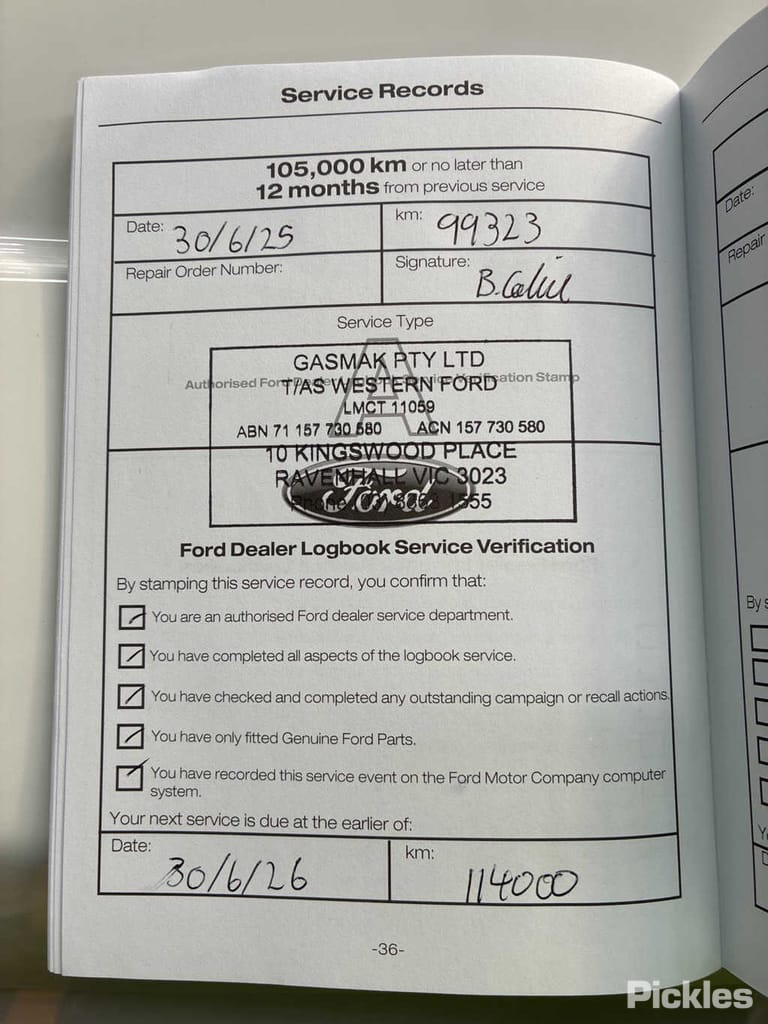 Service Records
105,000 km or no later than
12 months from previous service
Date: 30/6/25
km: 99323
Repair Order Number:
Signature: B.
Service Type
A
Authorised Ford Service Verification Stamp
GASMAK PTY LTD
T/AS WESTERN FORD
LMCT 11059
ABN 71 157 730 580 ACN 157 730 580
10 KINGSWOOD PLACE
RAVENHALL VIC 3023
Phone (03) 1555
Ford
Ford Dealer Logbook Service Verification
By stamping this service record, you confirm that:
You are an authorised Ford dealer service department.
You have completed all aspects of the logbook service.
You have checked and completed any outstanding campaign or recall actions.
You have only fitted Genuine Ford Parts.
You have recorded this service event on the Ford Motor Company computer
system.
Your next service is due at the earlier of:
Date: 30/6/26
km: 114000
-36-
Date:
Repair
By
Pickles